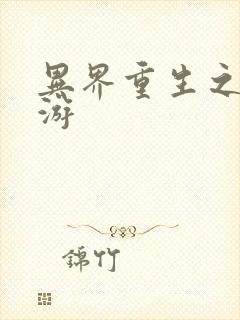 異界重生之
游
錦竹